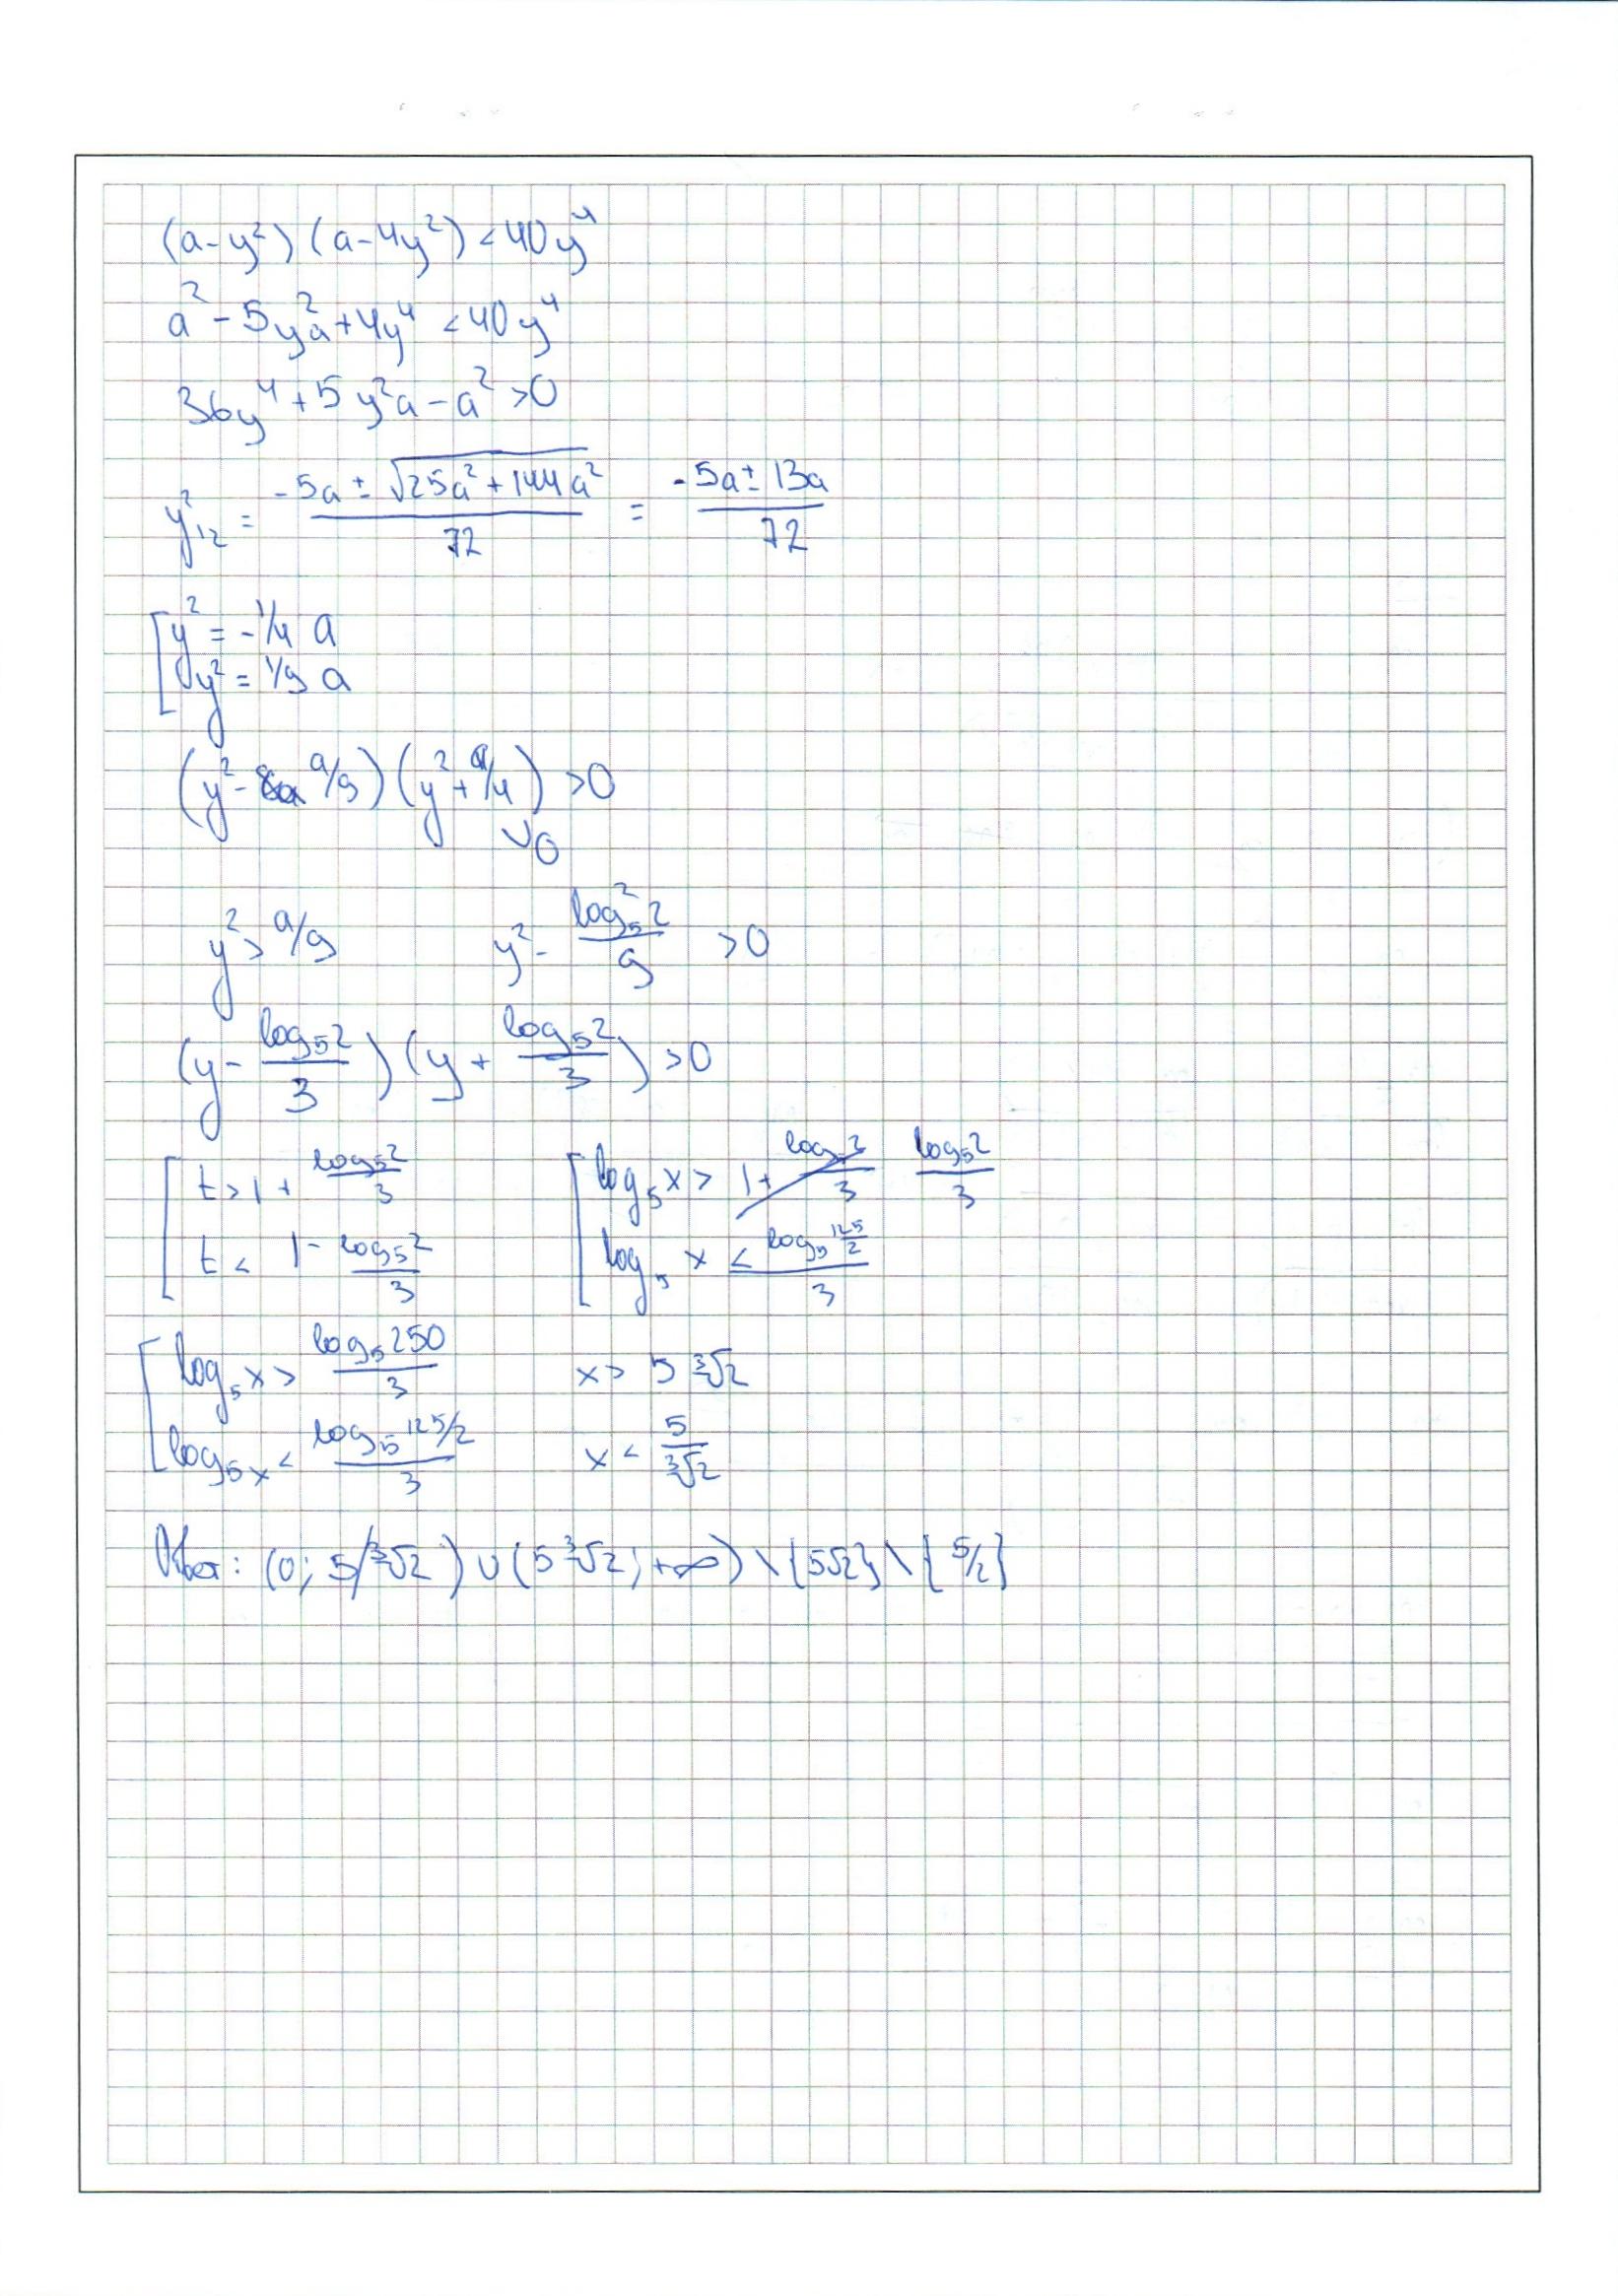 (a-y²)(a-4y²)<40y⁴
a²-5y²a+4y⁴<40y⁴
36y⁴+5y²a-a²>0
y²₁₂ = (-5a±√(25a²+144a²))/72 = (-5a±13a)/72
[y² = -1/4 a
y² = 1/9 a
(y²- a/9)(y²+a/4)>0
∨0
y²>a/9 y²- log₅²2/9 >0
(y- log₅2/3)(y+ log₅2/3)>0
[t>1+ log₅2/3 [log₅x> log₅2/3
t< 1- log₅2/3 log₅x < log₅(125/2)/3
[log₅x> log₅250/3 x> 5∛2
log₅x< log₅(125/2)/3 x< 5/∛2
Ответ: (0; 5/∛2)∪(5∛2;+∞)\{5√2}\{5/2}